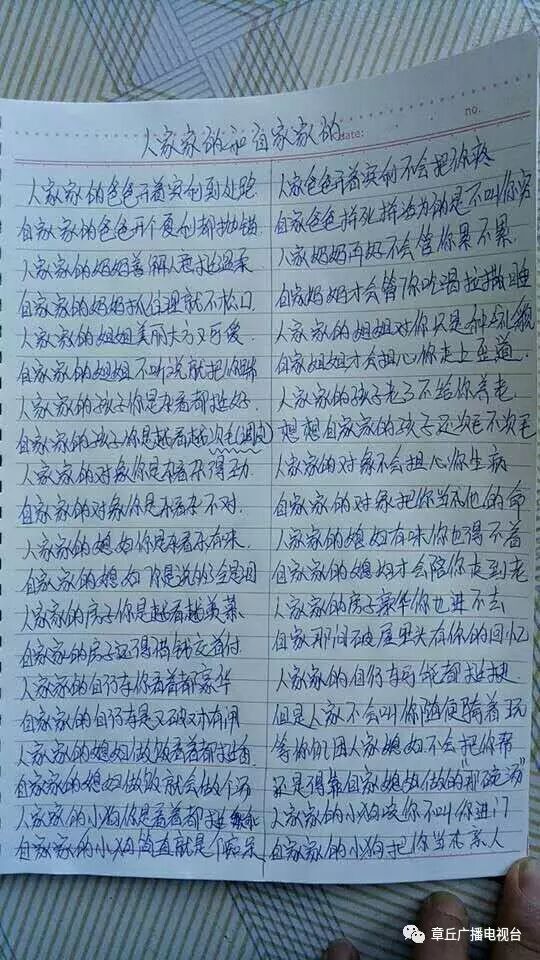 no.
date:
人家家的和自家家的
人家家的爸爸开着宾利到处跑
自家家的爸爸开个夏利都抛锚
人家家的妈妈善解人意挺温柔
自家家的妈妈抓住理就不松口
人家家的姐姐美丽大方又可爱
自家家的姐姐不听说就把你踹
人家家的孩子你是杂看都挺好
自家家的孩子你是越看越次毛(调皮)
人家家的对象你是杂看杂得劲
自家家的对象你是杂看杂不对
人家家的媳妇你是杂看杂有味
自家家的媳妇你是说的全是
人家家的房子你是越看越羡慕
自家家的房子还得借钱交首付
人家家的自行车你看着都豪华
自家家的自行车是又破又没有闸
人家家的媳妇做饭看着都挺香
自家家的媳妇做饭就会做个汤
人家家的小狗你是看着都挺
自家家的小狗简直就是个痴呆
人家爸爸开着宾利不会把你疼
自家爸爸拼死拼活为的是不叫你穷
人家妈妈再好不会管你累不累
自家妈妈才会管你吃喝拉撒睡
人家家的姐姐对你只是种礼貌
自家姐姐才会担心你走上歪道
人家家的孩子老了不给你养老
想想自家家的孩子还次毛不次毛
人家家的对象不会担心你生病
自家家的对象把你当和他的命
人家家的媳妇有味你也得不着
自家家的媳妇才会陪你走到老
人家家的房子豪华你也进不去
自家那间破屋里头有你的回忆
人家家的自行车可能都挺
但是人家不会叫你随便骑着玩
等你饥困人家媳妇不会把你帮
还是得靠自家媳妇做的"那碗汤"
人家家的小狗咬你不叫你进门
自家家的小狗把你当和亲人
章丘广播电视台